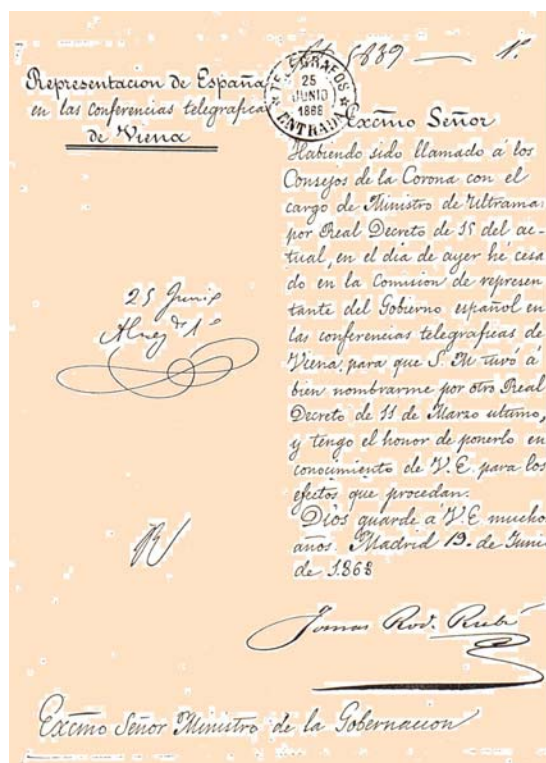 5839 — 1º
Representacion de España
en las conferencias telegraficas
de Viena
TELEGRAFOS
25
JUNIO
1868
ENTRADA
Excmo Señor
Habiendo sido llamado á los
Consejos de la Corona con el
cargo de Ministro de Ultramar
por Real Decreto de 15 del ac-
tual, en el dia de ayer hé cesa
do en la Comision de represen
tante del Gobierno español en
las conferencias telegraficas de
Viena, para que S. M. tuvó á
bien nombrarme por otro Real
Decreto de 11 de Marzo ultimo,
y tengo el honor de ponerlo en
conocimiento de V. E. para los
efectos que procedan.
Dios guarde á V. E. mucho
años. Madrid 19. de Juni
de 1868
25 Junio
1º
Tomas Rod. Rubí
Excmo Señor Ministro de la Gobernacion